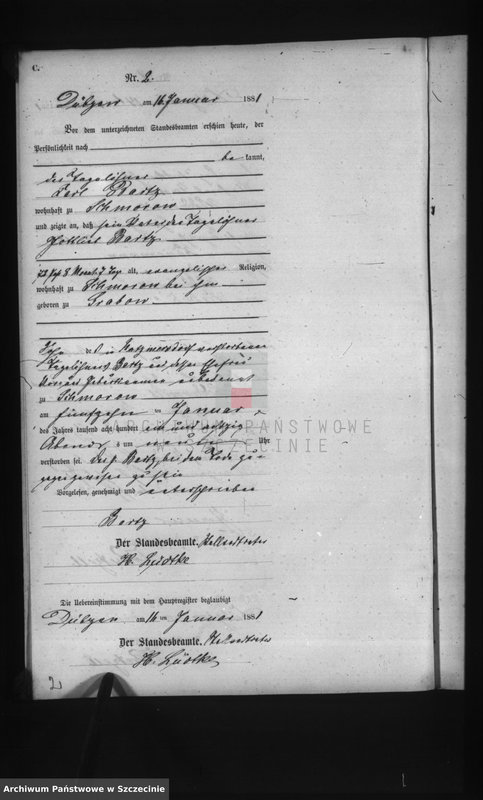 C.
Nr. 2.
Dübzow am 16 Januar 1881
Vor dem unterzeichneten Standesbeamten erschien heute, der
Persönlichkeit nach
be kannt,
der Tagelöhner
Carl Bartz
wohnhaft zu Schmorow
und zeigte an, daß sein Vater der Tagelöhner
Gottlieb Bartz
8 Monat 7 Tage alt, evangelischer Religion,
wohnhaft zu Schmorow bei ihm
geboren zu Grabow
Sohn des in verstorbenen
Tagelöhners Bartz und dessen Ehefrau
unbekannt
zu Schmorow
am fünfzehn ten Januar
des Jahres tausend acht hundert ein und achtzig
Abends um neun Uhr
verstorben sei. Carl Bartz bei dem Tode zu
gegen gewesen zu sein
Vorgelesen, genehmigt und unterschrieben
Bartz
Der Standesbeamte. Stellvertreter
H. Lüdtke
Die Uebereinstimmung mit dem Hauptregister beglaubigt
am 16 ten Januar 1881
Der Standesbeamte. Stellvertreter
H. Lüdtke
2
ARCHIWUM PAŃSTWOWE
W SZCZECINIE
Archiwum Państwowe w Szczecinie